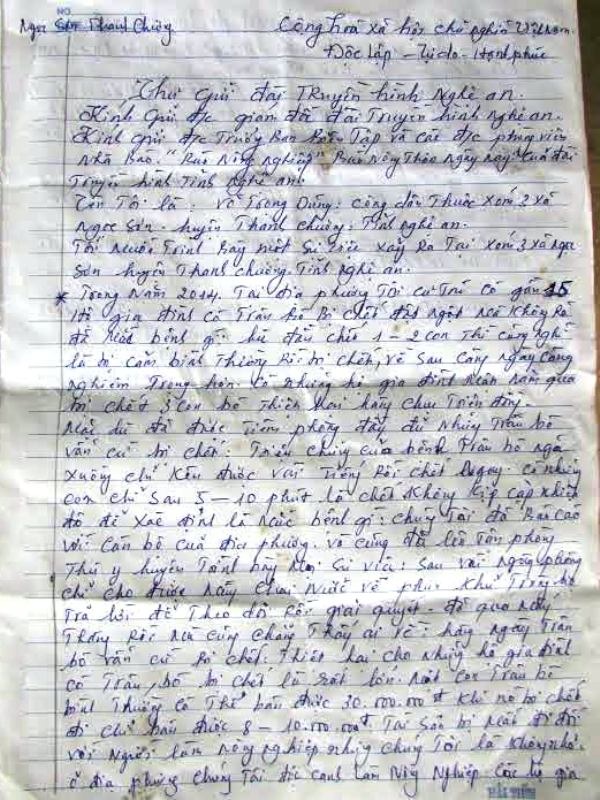 Ngọc Sơn Thanh Chương Cộng hoà xã hội chủ nghĩa Việt Nam.
Độc lập - Tự do - Hạnh phúc
Thư gửi đài Truyền hình Nghệ an.
Kính gửi đ/c giám đốc đài Truyền hình nghệ an.
Kính gửi đ/c Trưởng Ban Biên Tập và các đ/c phóng viên
Nhà Báo. " Nông nghiệp" Báo Nông Thôn Ngày nay. của đài
Truyền hình Tỉnh nghệ an.
Tên Tôi là: Võ Trọng Dũng: công dân Thuộc xóm 3 xã
Ngọc Sơn - huyện Thanh chương: Tỉnh nghệ an.
Tôi muốn Trình Bày một Sự việc xẩy Ra Tại xóm 3 xã Ngọc
Sơn huyện Thanh chương. Tỉnh nghệ an.
* Trong năm 2014. Tại địa phương Tôi cư Trú có gần 15
hộ gia đình có Trâu bò Bị chết đột ngột mà không Rõ
đã mắc bệnh gì: lúc đầu chết 1-2 con Thì cũng nghĩ
là bị cảm bình Thường Rồi bị chết, về Sau càng ngày càng
nghiêm Trọng hơn. có những hộ gia đình năm qua
bị chết 3 con bò Thiệt hại hàng chục Triệu đồng.
Mặc dù đã được Tiêm phòng đầy đủ nhưng Trâu bò
vẫn cứ bị chết: Triệu chứng của bệnh Trâu bò ngã
xuống chỉ kêu được vài Tiếng Rồi chết luôn. có những
con chỉ Sau 5-10 phút là chết không kịp cặp nhiệt
độ để xác định là mắc bệnh gì: chúng Tôi đã Báo cáo
với cán bộ của địa phương. và cũng đã lên Tận phòng
Thú y huyện Trình bày mọi Sự việc: Sau vài ngày phòng
chỉ cho được mấy chai nước về phun khử Trùng và
Trả lời để Theo dõi Rồi giải quyết. đã qua mấy
Tháng Rồi mà cũng chẳng Thấy ai về: hàng ngày Trâu
bò vẫn cứ Bị chết. Thiệt hại cho những hộ gia đình
có Trâu, bò bị chết là rất lớn. Một con Trâu bò
bình Thường có Thể bán được 30.000.000đ khi nó bị chết
đi chỉ bán được 8-10.000.000đ Tài Sản bị mất đi đối
với Người làm nông nghiệp như chúng Tôi là không nhỏ.
ở địa phương chúng Tôi độc canh làm Nông Nghiệp các hộ gia